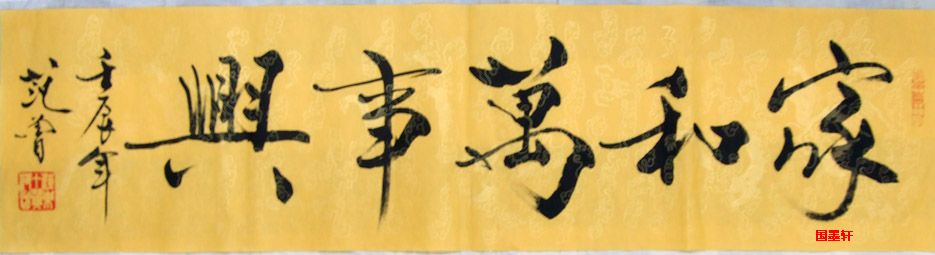 家和萬事興
壬辰年
范曾
国墨轩